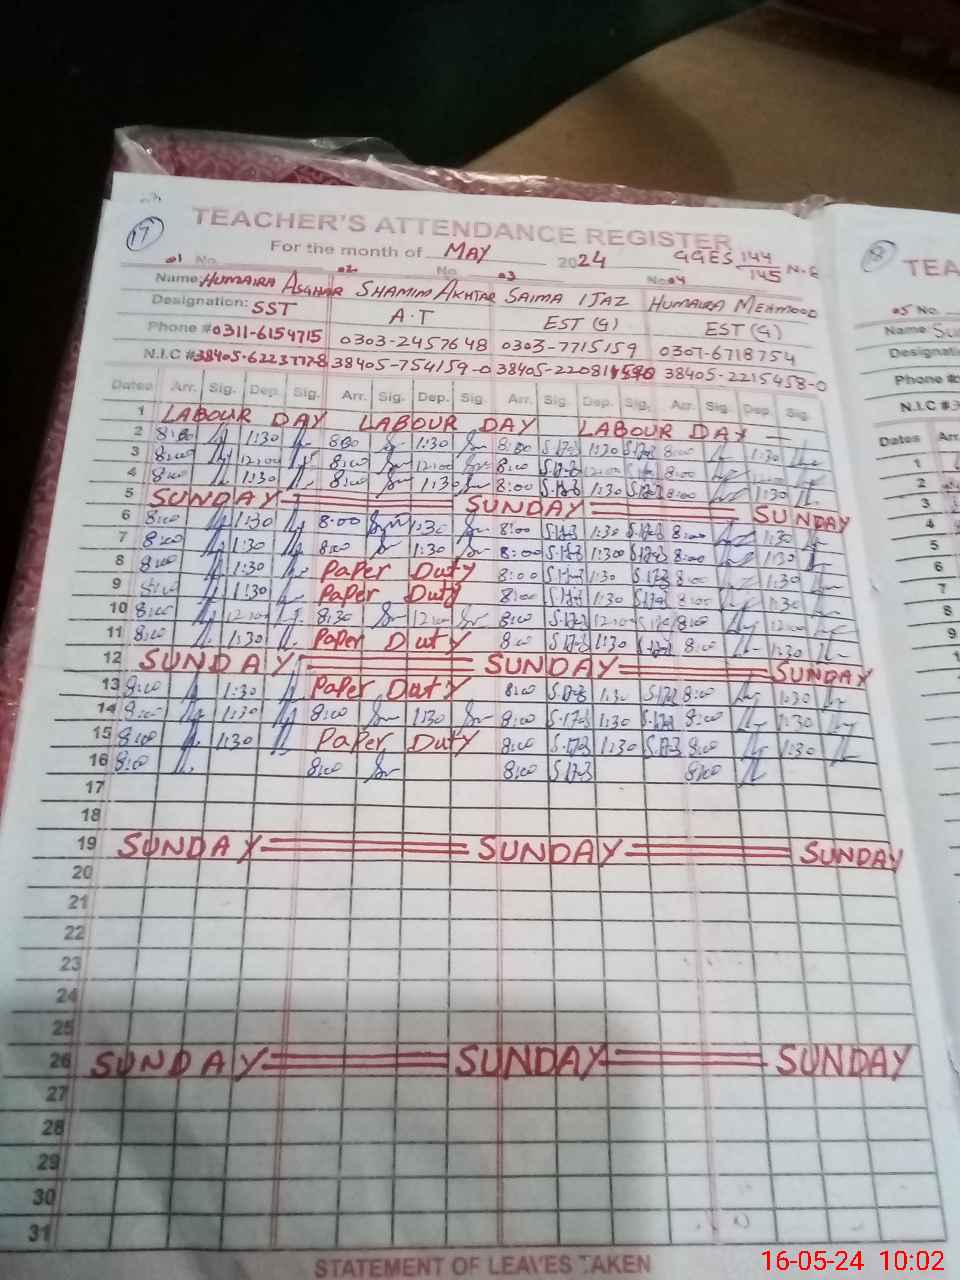 17
TEACHER'S ATTENDANCE REGISTER
For the month of MAY 2024 GGES 144/145 N.B
01 No. 02 No. 03 No. 04
Name: HUMAIRA ASGHAR SHAMIM AKHTAR SAIMA IJAZ HUMAIRA MEHMOOD
Designation: SST A.T EST (G) EST (G)
Phone # 0311-6154715 0303-2457648 0303-7715159 0307-6718754
N.I.C # 38405-754159-0 38405-2215458-0
Dates Arr. Sig. Dep. Sig. Arr. Sig. Dep. Sig. Arr. Sig. Dep. Sig. Arr. Sig. Dep. Sig.
1 LABOUR DAY LABOUR DAY LABOUR DAY
2 8:00 1:30 8:00 1:30 8:00 1:30 8:00 1:30
3 8:00 12:00 8:00 12:00 8:00 12:00 8:00 12:00
4 8:00 1:30 8:00 1:30 8:00 1:30 8:00 1:30
5 SUNDAY SUNDAY SUNDAY
6 8:00 1:30 8:00 1:30 8:00 1:30 8:00 1:30
7 8:00 1:30 8:00 1:30 8:00 1:300 8:00 1:30
8 8:00 1:30 Paper Duty 8:00 1:30 8:00 1:30
9 8:00 1:30 Paper Duty 8:00 1:30 8:00 1:30
10 8:00 12:00 8:30 12:00 8:00 12:00 8:00 12:00
11 8:00 1:30 Paper Duty 8:00 1:30 8:00 1:30
12 SUNDAY SUNDAY SUNDAY
13 8:00 1:30 Paper Duty 8:00 1:30 8:00 1:30
14 8:00 1:30 8:00 1:30 8:00 1:30 8:00 1:30
15 8:00 1:30 Paper Duty 8:00 1:30 8:00 1:30
16 8:00 8:00 8:00 8:00
17
18
19 SUNDAY SUNDAY SUNDAY
20
21
22
23
24
25
26 SUNDAY SUNDAY SUNDAY
27
28
29
30
31
STATEMENT OF LEAVES TAKEN
18
TEA
05 No.
Name: Su
Designati
Phone #
N.I.C #3
Dates Arr.
1
2
3
4
5
6
7
8
9
16-05-24 10:02